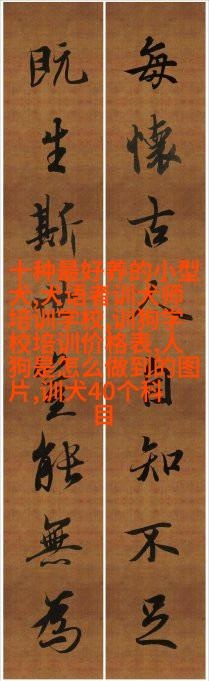 每懷古人自知不足
既生斯能無為
十种最好养的小型
犬,犬语者训犬师
培训学校,训狗学
校培训价格表,人
狗是怎么做到的图
片,训犬40个科
目